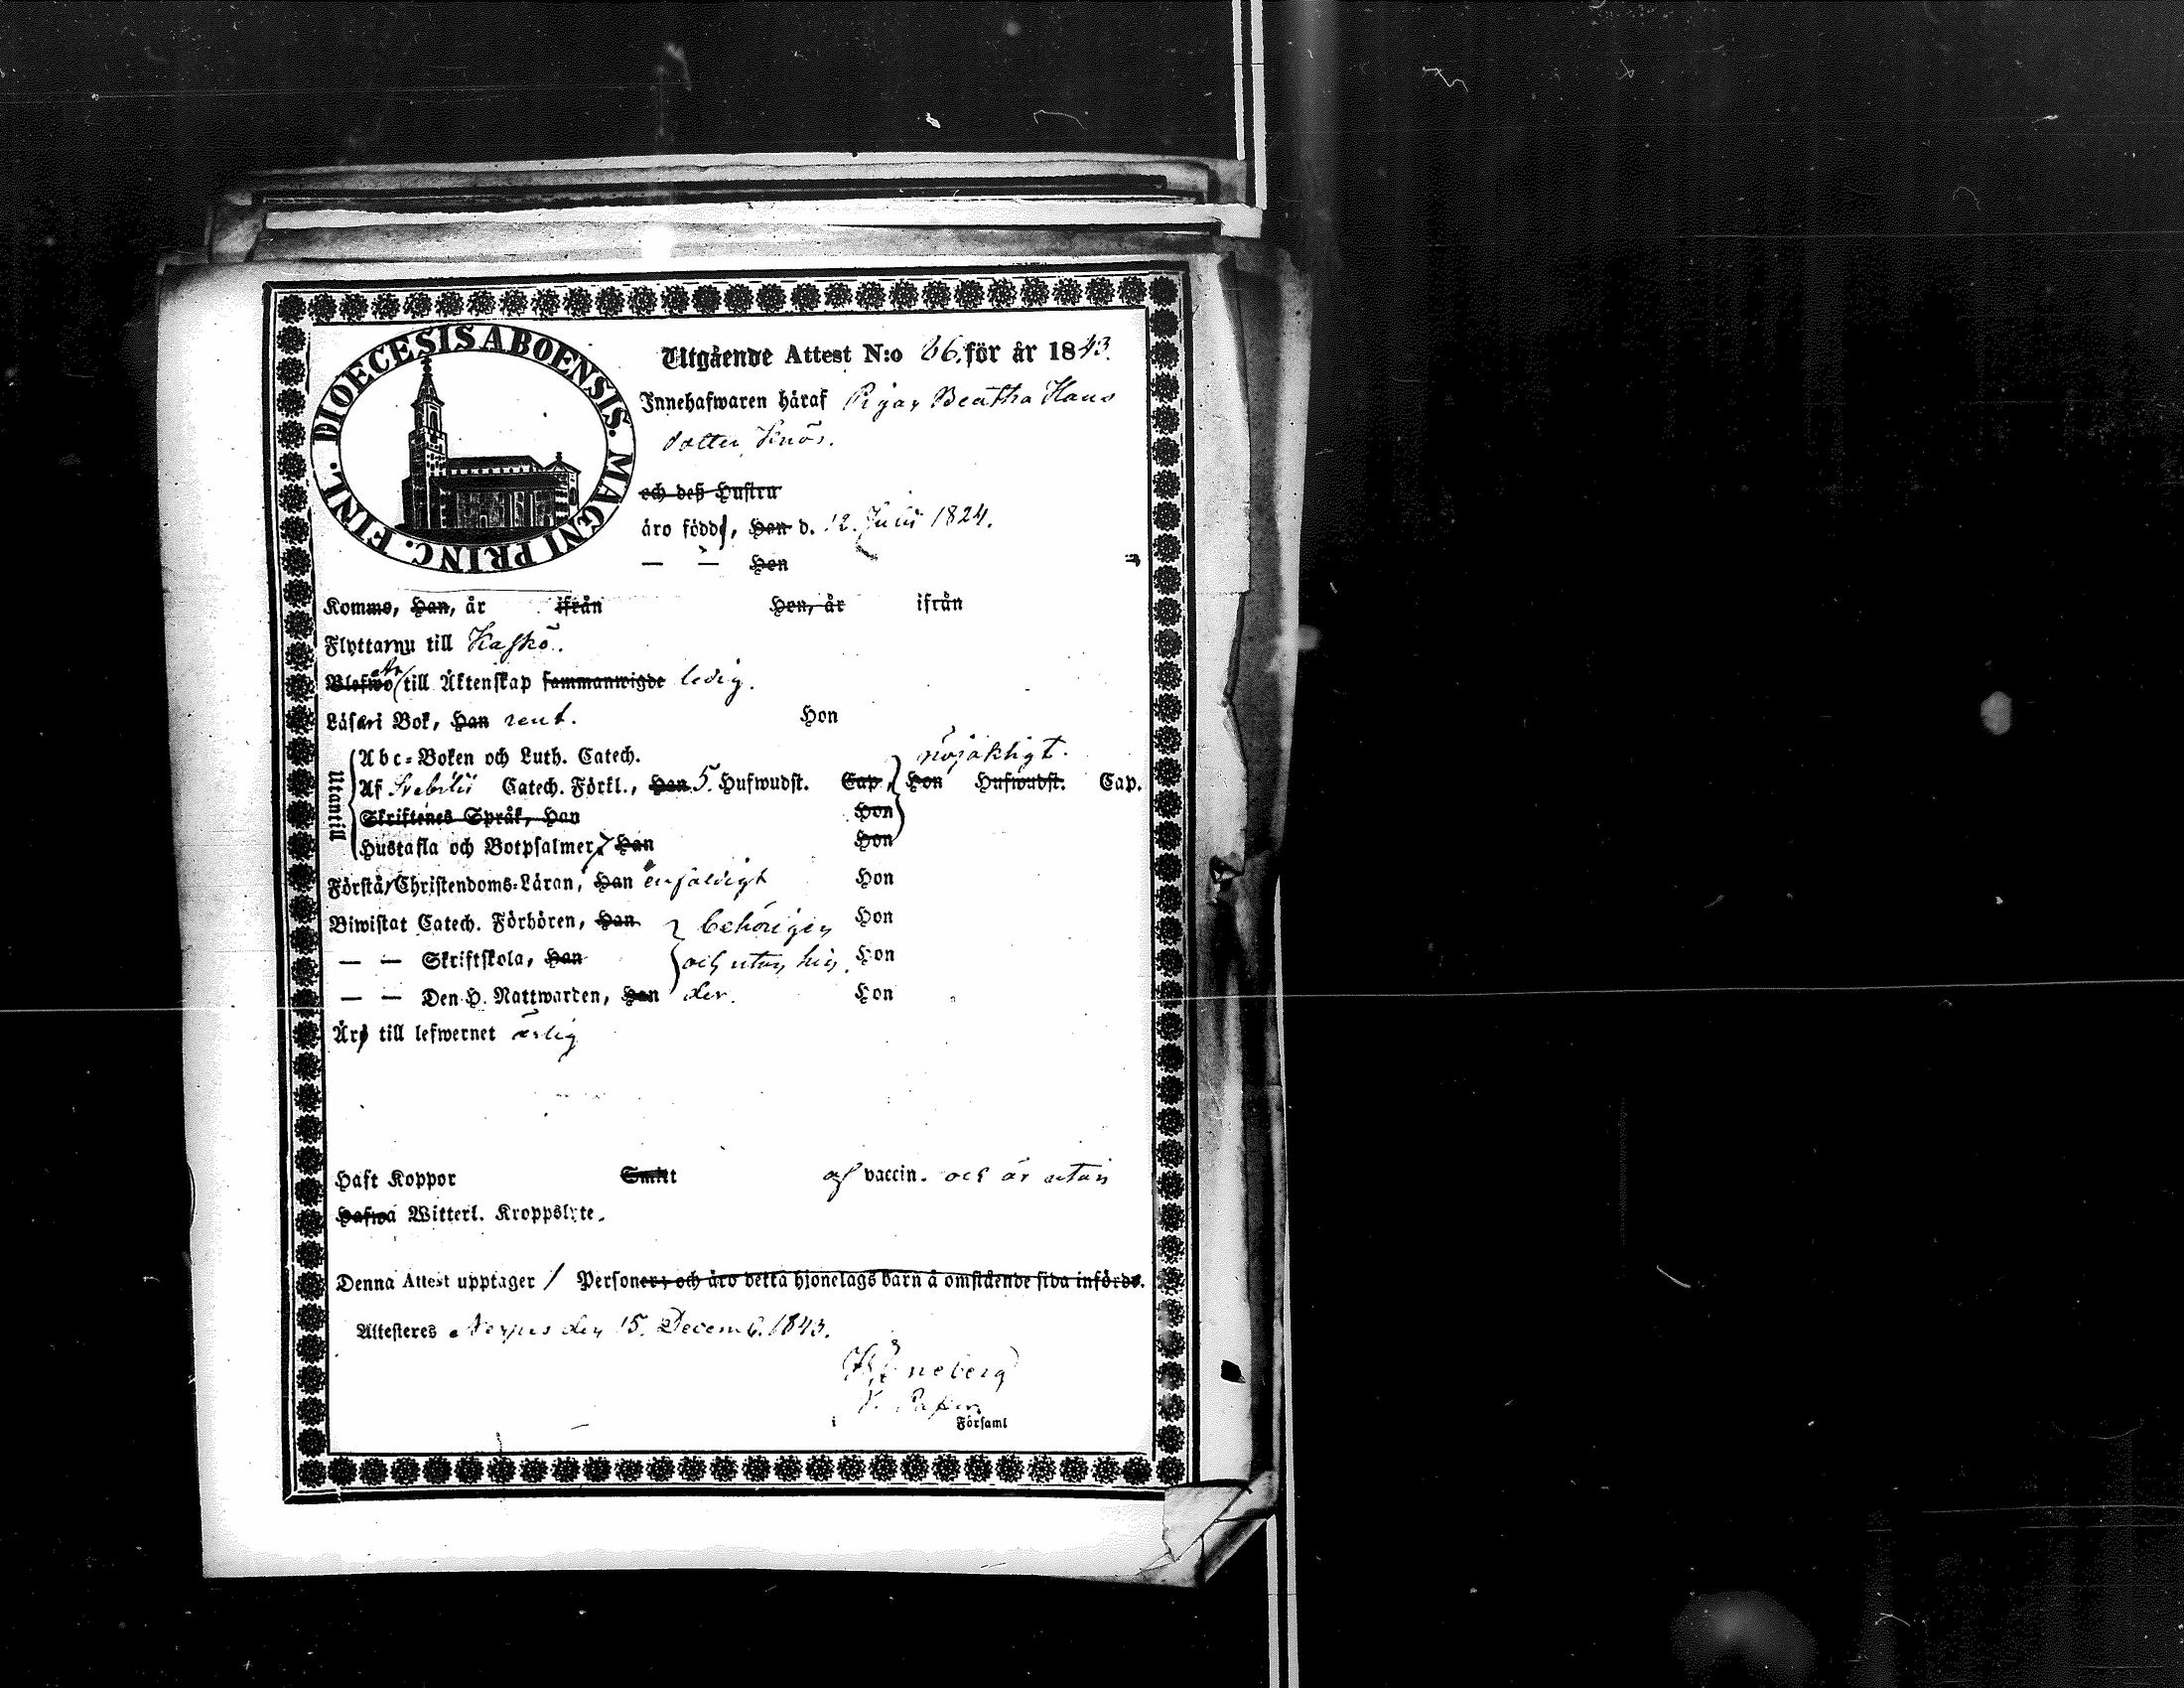 DIOECESIS ABOENSIS. MAGNI PRINC. FINL.
Utgående Attest N:o 26. för år 1843.
Innehafwaren häraf Pigan Beatha Hans
dotter Knös.
och deß Hustru
äro född, Han d. 12. Julii 1824.
— — Hon
Komme, Han, år ifrån Hon, år ifrån
Flyttar nu till Kaskö.
Blefwo Är till Äktenskap sammanwigde ledig.
Läser i Bok, Han rent. Hon
Utantill
Abc-Boken och Luth. Catech. nöjaktligt.
Af Svebilii Catech. Förkl., Han 5. Hufwudst. Cap, Hon Hufwudst. Cap.
Skriftenes Språk, Han Hon
Hustafla och Botpsalmer, Han Hon
Förstår Christendoms-Läran, Han enfaldigt Hon
Biwistat Catech. Förhören, Han behörigen Hon
— — Skriftskola, Han och utan hin Hon
— — Den H. Nattwarden, Han der. Hon
Äro till lefwernet ärlig
Haft Koppor Smitt af vaccin. och är utan
Hafwa Witterl. Kroppslyte.
Denna Attest upptager / Personer; och äro detta hjonelags barn å omstående sida införde.
Attesteres Nerpes den 15. Decemb. 1843.
i Församl